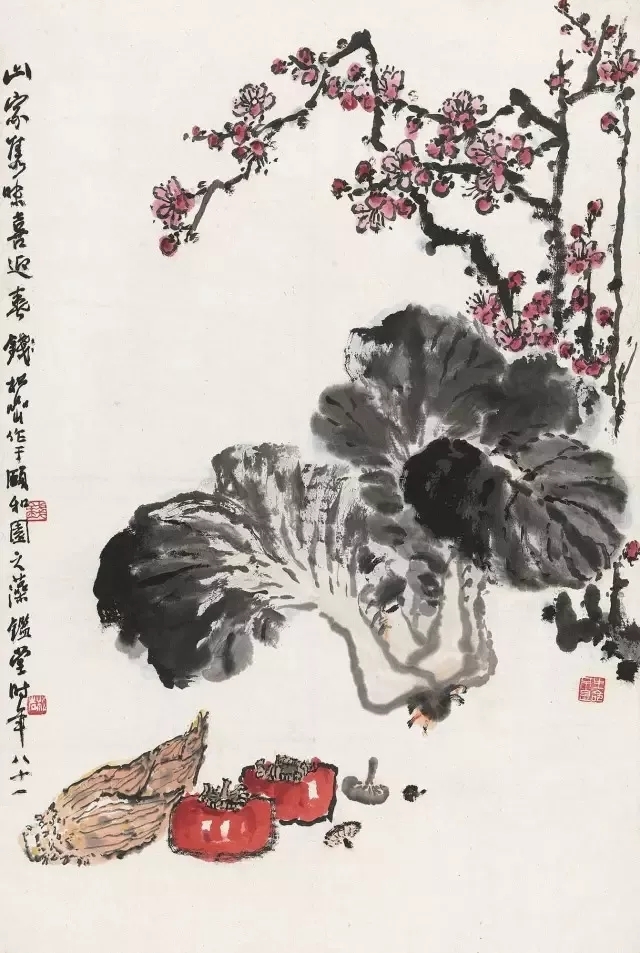 山家隽味喜迎春 钱松喦作于颐和园之藻鑑堂时年八十一